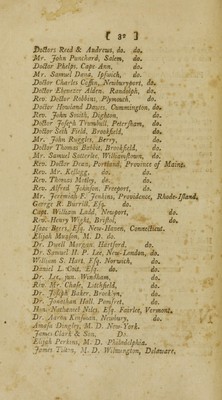 [ 32 ]
Doctors Reed & Andrews, do. do.
Mr. John Punchard, Salem, do.
Doctor Phelps, Cape-Ann, do.
Mr. Samuel Dana, Ipswich, do.
Doctor Charles Coffin, Newburyport, do.
Doctor Ebenezer Alden, Randolph, do.
Rev. Doctor Robbins, Plymouth, do.
Doctor Howland Dawes, Cummington, do.
Rev. John Smith, Dighton, do.
Doctor Joseph Trumbull, Petersham, do.
Doctor Seth Field, Brookfield, do.
Mr. John Ruggles, Berry, do.
Doctor Thomas Babbit, Brookfield, do.
Mr. Samuel Satterlee, Williamstown, do.
Rev. Doctor Dean, Portland, Province of Maine.
Rev. Mr. Kellogg, do. do.
Rev. Thomas Motley, do. do.
Rev. Alfred Johnson, Freeport, do.
Mr. Jeremiah F. Jenkins, Providence, Rhode-Island,
George R. Burrill, Esq. do.
Capt. William Ladd, Newport, do.
Rev. Henry Wight, Bristol, do.
Isaac Beers, Esq. New-Haven, Connecticut.
Elijah Munson, M. D. do.
Dr. Dwell Morgan, Hartford. do.
Dr. Samuel H. P. Lee, New-London, do.
William S. Hart, Esq. Norwich, do.
Daniel L. Coit, Esq. do. do.
Dr. Lee, jun. Windham, do.
Rev. Mr. Chase, Litchfield, do.
Dr. Joseph Baker, Brooklyn, do.
Dr. Jonathan Hall, Pomfret, do.
Hon. Nathaniel Niles, Esq. Fairlee, Vermont,
Dr. Aaron Kinsman, Newbury, do.
Amasa Dingley, M. D. New-York.
James Clark & Son, Do
Elijah Perkins, M. D. Philadelphia.
James Tilton, M. D. Wilmington, Delaware,